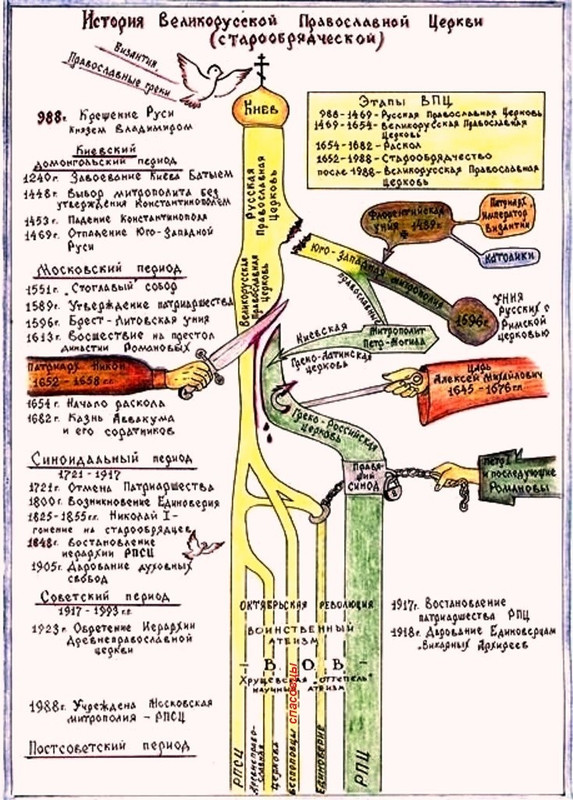 История Великорусской Православной Церкви
(старообрядческой)
Византия.
Православные греки
988г. Крещение Руси
князем Владимиром
Киевский
домонгольский период
1240г. Завоевание Киева Батыем
1448г. Выбор митрополита без
утверждения Константинополем
1453г. Падение Константинополя
1469г. Отпадение Юго-Западной
Руси
Московский период
1551г. „Стоглавый" собор
1589г. Утверждение патриаршества
1596г. Брест-Литовская уния
1613г. Восшествие на престол
династии Романовых
Патриарх Никон
1652-1658 г.г.
1654г. Начало раскола
1682г. Казнь Аввакума
и его соратников
Синоидальный период
1721-1917
1721г. Отмена Патриаршества
1800г. Возникновение Единоверия
1825-1855г.г. Николай I-
гонение на старообрядцев
1848г. Востановление
иерархии РПСЦ
1905г. Дарование духовных
свобод
Советский период
1917-1993 г.г.
1923г. Обретение Иерархии
Древнеправославной
церкви
1988г. Учреждена Московская
митрополия - РПСЦ
Постсоветский период
Киев
Русская
Православная
Церковь
Великорусская
Православная
Церковь
Этапы ВПЦ
988-1469-Русская Православная Церковь
1469-1654-Великорусская Православная
Церковь
1654-1682-Раскол
1652-1988-Старообрядчество
после 1988-Великорусская Православная
Церковь
Флорентийская
уния 1439г.
Патриарх,
император
Византии
католики
Юго-Западная митрополия
православные
1596г.
Уния
русских с
Римской
церковью
Киевская
Митрополит
Петр-Могила
Греко-Латинская
церковь
Царь
Алексей Михайлович
1645-1676 г.г.
Греко-Российская
церковь
Правя-
щий
Синод
Петр I
и последующие
Романовы
Октябрьская революция
Воинственный
атеизм
В. О. В.
Хрущевская "оттепель"
научный атеизм
1917г. Востановление
патриаршества РПЦ
1918г. Дарование Единоверцам
Викарных Архиреев
РПСЦ
Древлеправо-
славная
церковь
Беспоповцы
спасовцы
Единоверие
РПЦ